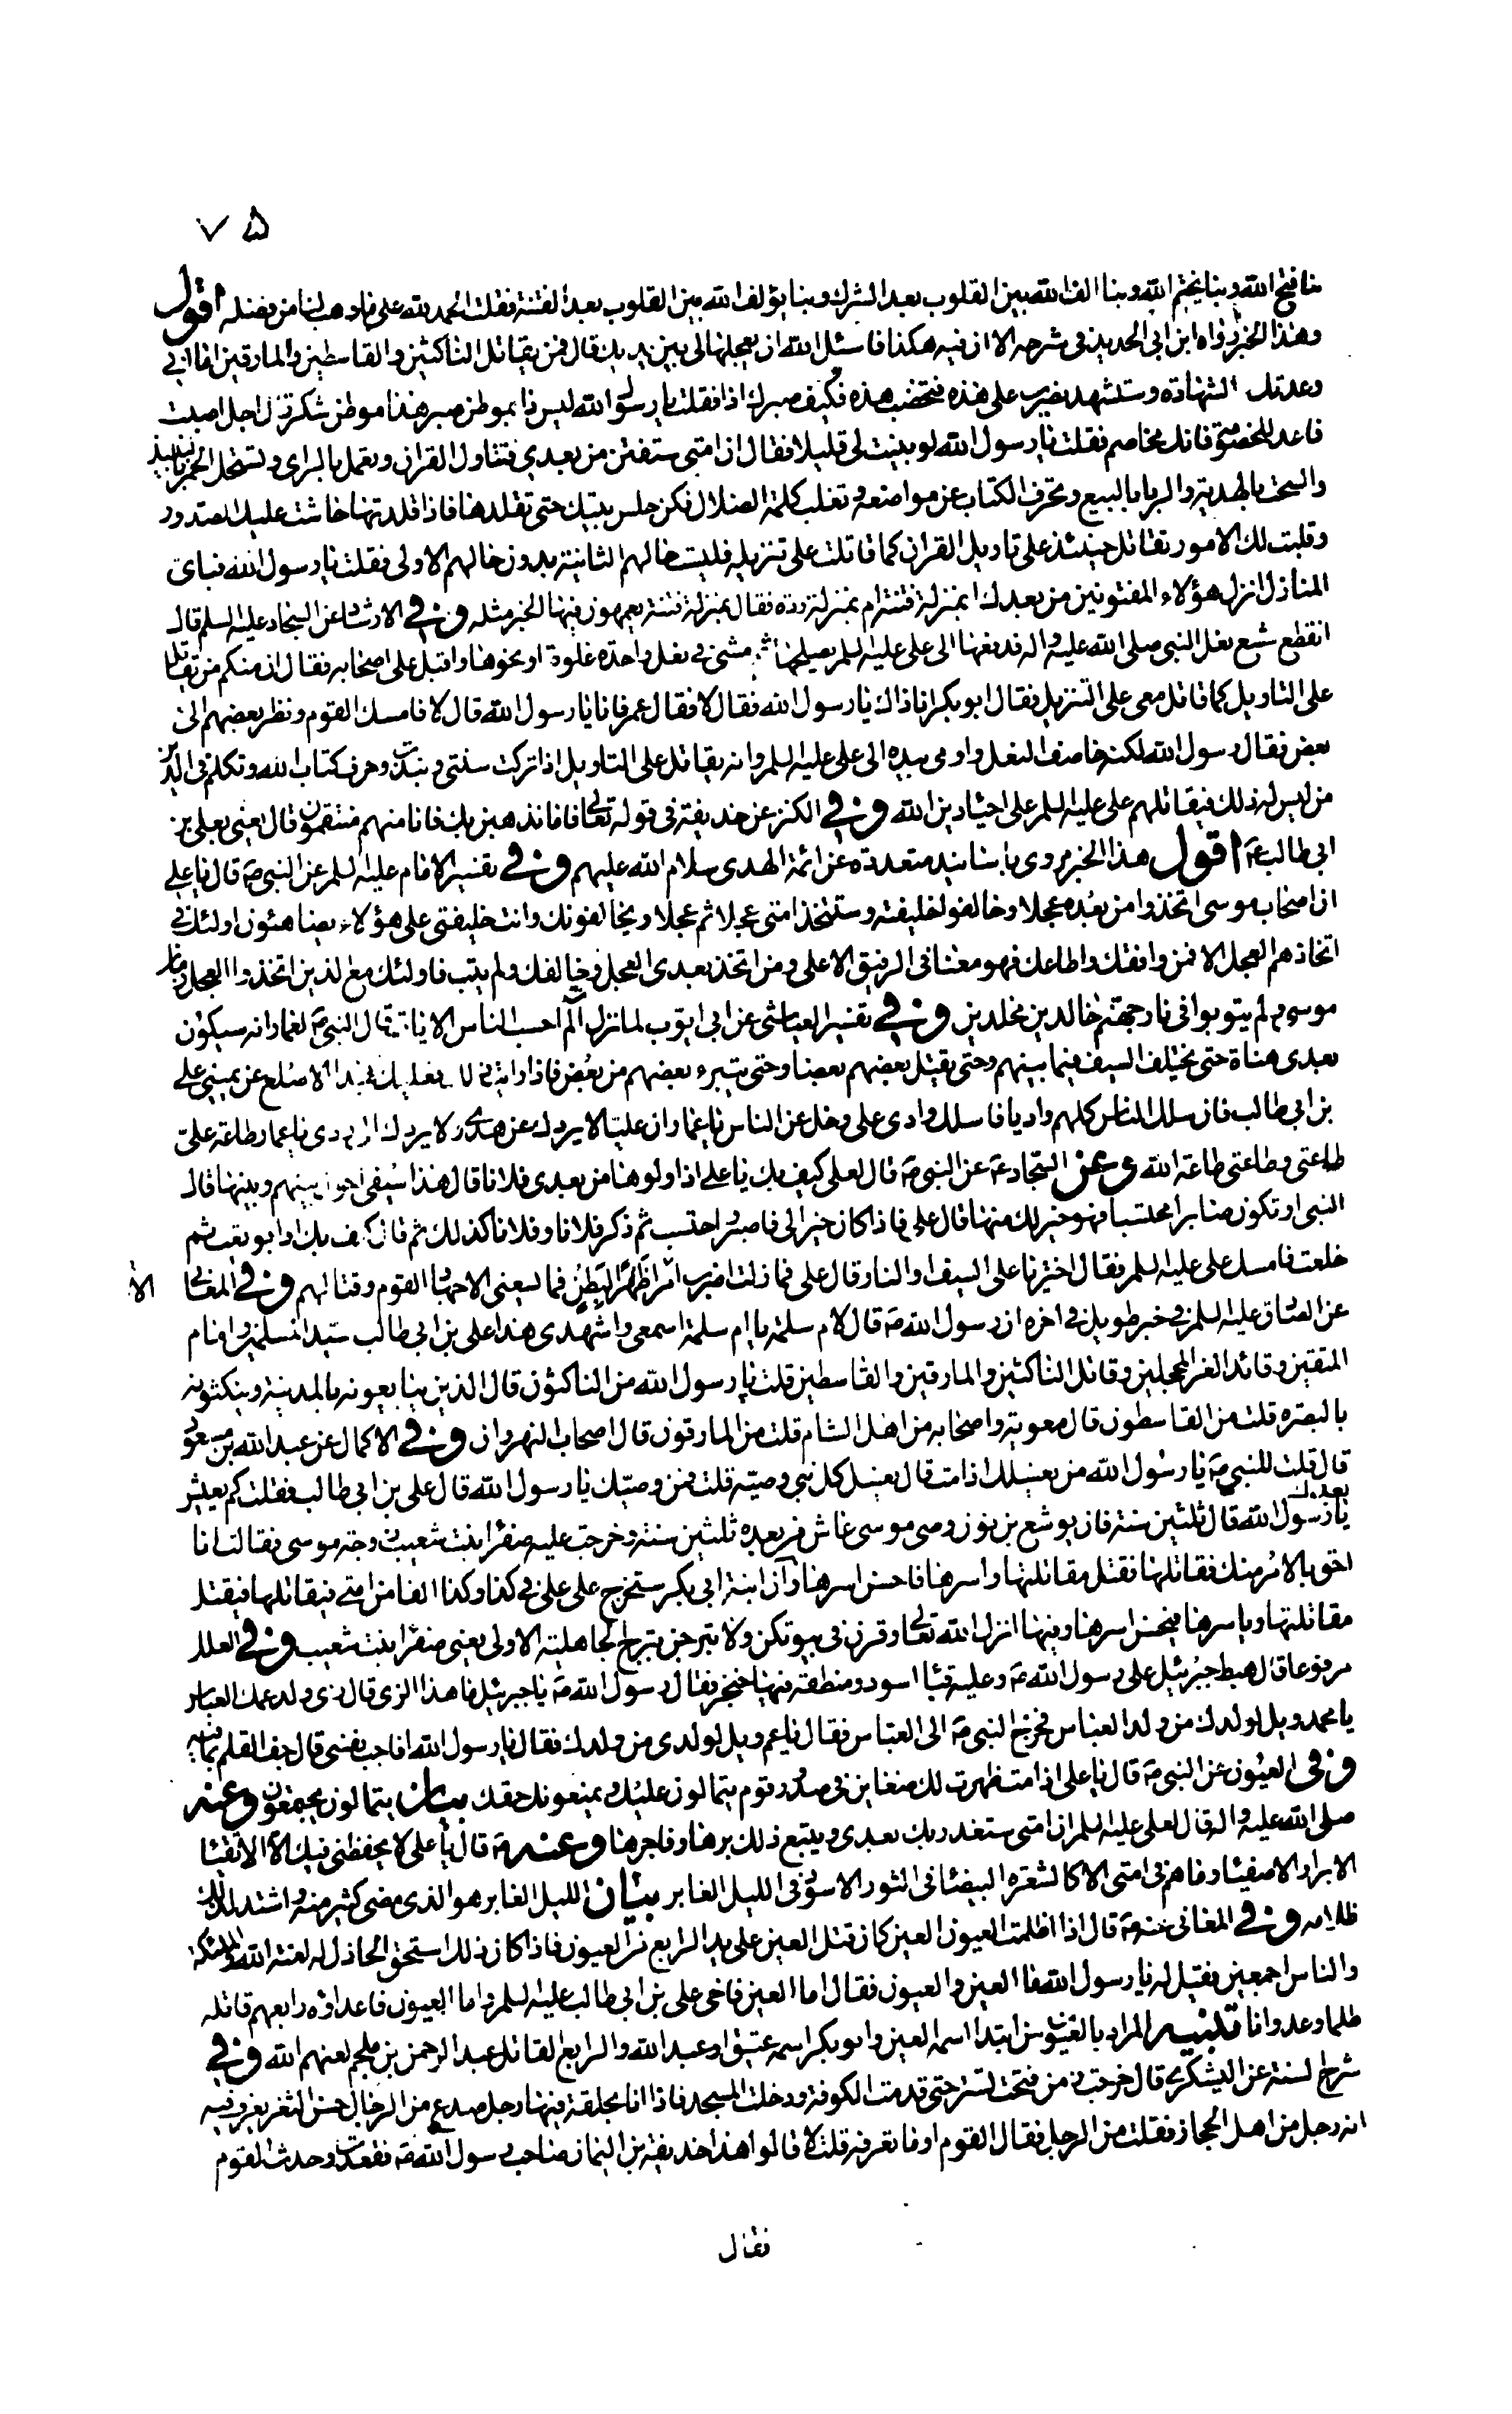 ٧٥
بنا فتح الله وبنا يختم الله وبنا الف الله بين القلوب بعد الشرك وبنا يؤلف الله بين القلوب بعد الفتنة فقلت الحمد لله على ما وهب لنا من فضله اقول
وهذا الخبر رواه ابن ابي الحديد في شرحه الا ان فيه هكذا فاسئل الله ان يعجلها لي بين يديك قال فمن يقاتل الناكثين والقاسطين والمارقين اما اني
وعدتك الشهادة وستشهد يضرب على هذه فتخضب هذه فكيف صبرك اذا فقلت يا رسول الله ليس ذا بموطن صبر هذا موطن شكر قال اجل اصبت
فاعد للخصومة فانك مخاصم فقلت يا رسول الله لو بينت لي قليلا فقال ان امتي ستفتن من بعدي فتتاول القران وتعمل بالراى وتستحل الخمر بالنبيذ
والسحت بالهدية والربا بالبيع وتحرف الكتاب عن مواضعه وتغلب كلمة الضلال فكن جليس بيتك حتى تقلدها فاذا قلدتها جاشت عليك الصدور
وقلبت لك الامور تقاتل حينئذ على تاويل القران كما قاتلت على تنزيله فليست حالهم الثانية بدون حالهم الاولى فقلت يا رسول الله فباى
المنازل انزل هؤلاء المفتونين من بعدك ا بمنزلة فتنة ام بمنزلة ردة فقال بمنزلة فتنة يعمهون فيها الخبر مثله وفي الارشاد عن السجاد عليه السلم قال
انقطع شسع نعل النبي صلى الله عليه واله فدفعها الى علي عليه السلم يصلحها ثم مشى في نعل واحدة غلوة او نحوها واقبل على اصحابه فقال ان منكم من يقاتل
على التاويل كما قاتل معي على التنزيل فقال ابو بكر انا ذاك يا رسول الله فقال لا فقال عمر فانا يا رسول الله قال لا فامسك القوم ونظر بعضهم الى
بعض فقال رسول الله لكنه خاصف النعل واومى بيده الى علي عليه السلم وانه يقاتل على التاويل اذا تركت سنتي ونبذت وحرف كتاب الله وتكلم في الدين
من ليس له ذلك فيقاتلهم علي عليه السلم على احياء دين الله وفي الكنز عن حذيفة في قوله تعالى فاما نذهبن بك فانا منهم منتقمون قال يعني بعلي بن
ابي طالب ع اقول هذا الخبر مروى باسانيد متعددة عن ائمة الهدى سلام الله عليهم وفي تفسير الامام عليه السلم عن النبي ص قال يا علي
ان اصحاب موسى اتخذوا من بعده عجلا وخالفوا خليفته وستتخذ امتي عجلا ثم عجلا ويخالفونك وانت خليفتي على هؤلاء يضاهئون اولئك في
اتخاذهم العجل الا فمن وافقك واطاعك فهو معنا في الرفيق الاعلى ومن اتخذ بعدى العجل وخالفك ولم يتب فاولئك مع الذين اتخذوا العجل زمان
موسى ولم يتوبوا في نار جهنم خالدين مخلدين وفي تفسير العياشي عن ابي ايوب لما نزل الم احسب الناس الايات قال النبي ص لعمار انه سيكون
بعدى هناة حتى يختلف السيف فيما بينهم وحتى يقتل بعضهم بعضا وحتى يتبرء بعضهم من بعض فاذا رايت ذلك فعليك بهذا الاصلع عن يميني علي
بن ابي طالب فان سلك الناس كلهم واديا فاسلك وادى علي وخل عن الناس يا عمار ان عليا لا يردك عن هدى ولا يردك الى ردى يا عمار طاعة علي
طاعتي وطاعتي طاعة الله وعن السجاد ع عن النبي ص قال لعلي كيف بك يا علي اذا ولوها من بعدى فلانا قال هذا سيفي احول بينهم وبينها قال
النبي او تكون صابرا محتسبا فهو خير لك منها قال علي فاذا كان خيرا لي فاصبر واحتسب ثم ذكر فلانا وفلانا كذلك ثم قال كيف بك اذا بويعت ثم
خلعت فامسك علي عليه السلم فقال اختر يا علي السيف او النار قال علي فما زلت اضرب امرى ظهرا لبطن فما يسعني الا جهاد القوم وقتالهم وفي المعاني
عن الصادق عليه السلم في خبر طويل في اخره ان رسول الله ص قال لام سلمة يا ام سلمة اسمعي واشهدى هذا علي بن ابي طالب سيد المسلمين وامام
المتقين وقائد الغر المحجلين وقاتل الناكثين والمارقين والقاسطين قلت يا رسول الله من الناكثون قال الذين يبايعونه بالمدينة وينكثونه
بالبصره قلت من القاسطون قال معوية واصحابه من اهل الشام قلت من المارقون قال اصحاب النهروان وفي الاكمال عن عبد الله بن مسعود
قال قلت للنبي ص يا رسول الله من يغسلك اذا مت قال يغسل كل نبي وصيه قلت فمن وصيك يا رسول الله قال علي بن ابي طالب فقلت كم يعيش
بعدك
يا رسول الله قال ثلثين سنة فان يوشع بن نون وصى موسى عاش من بعده ثلثين سنة وخرجت عليه صفرا بنت شعيب زوجة موسى فقالت انا
احق بالامر منك فقاتلها فقتل مقاتلتها واسرها فاحسن اسرها وان ابنة ابي بكر ستخرج على علي في كذا وكذا الفا من امتي فيقاتلها فيقتل
مقاتلتها وياسرها فيحسن اسرها وفيها انزل الله تعالى وقرن في بيوتكن ولا تبرجن تبرج الجاهلية الاولى يعني صفرا بنت شعيب وفي العلل
مرفوعا قال هبط جبرئيل على رسول الله ص وعليه قبا اسود ومنطقة فيها خنجر فقال رسول الله ص يا جبرئيل ما هذا الزى قال زى ولد عمك العباس
يا محمد ويل لولدك من ولد العباس فخرج النبي ص الى العباس فقال يا عم ويل لولدى من ولدك فقال يا رسول الله افاجب نفسى قال جف القلم بما فيه
وفي العيون عن النبي ص قال يا علي اذا مت ظهرت لك ضغاين في صدور قوم يتمالون عليك ويمنعونك حقك بيان يتمالون يجتمعون وعنه
صلى الله عليه واله قال لعلي عليه السلم ان امتي ستغدر بك بعدى ويتبع ذلك برها وفاجرها وعنه ص قال يا علي لا يحفظني فيك الا الاتقيا
الابرار الاصفيا وما هم في امتي الا كالشعرة البيضا في الثور الاسود في الليل الغابر بيان الليل الغابر هو الذى مضى كثير منه واشتد لذلك
ظلامه وفي المعاني عنه ص قال اذا اظلمت العيون العين كان قتل العين على يد الرابع من العيون فاذا كان ذلك استحق الخاذل له لعنة الله والملئكة
والناس اجمعين فقيل له يا رسول الله ما العين والعيون فقال اما العين فاخى علي بن ابي طالب عليه السلم واما العيون فاعداؤه رابعهم قاتله
ظلما وعدوانا تنبيه المراد بالعيون من ابتدا اسمه العين وابو بكر اسمه عتيق او عبد الله والرابع القاتل عبد الرحمن بن ملجم لعنهم الله وفي
شرح السنة عن اليشكرى قال خرجت زمن فتحت تستر حتى قدمت الكوفة ودخلت المسجد فاذا انا بحلقة فيها رجل صدع من الرجال حسن الثغر يعرف فيه
انه رجل من اهل الحجاز فقلت من الرجل فقال القوم او ما تعرفه قلت لا قالوا هذا حذيفة بن اليمان صاحب رسول الله ص فقعدت وحدث القوم
فقال